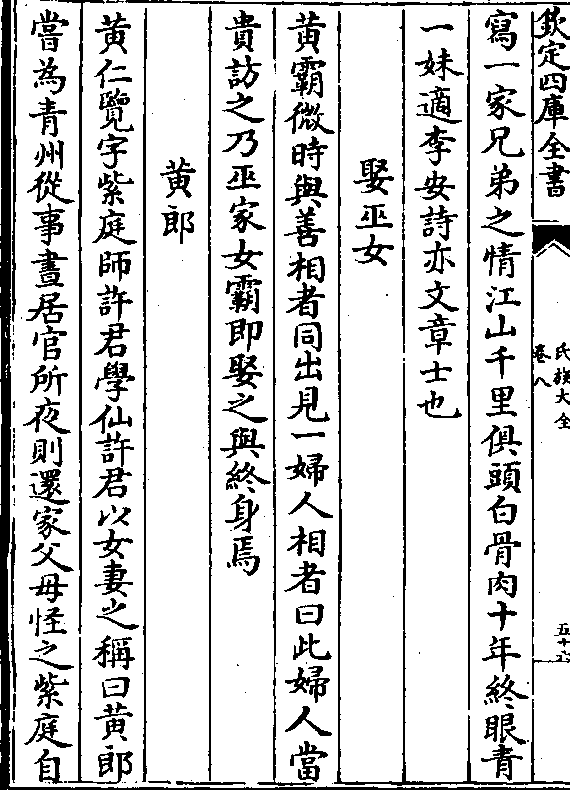 欽定四庫全書
氏族大全
卷八
寫一家兄弟之情江山千里俱頭白骨肉十年終眼青
一妹適李安詩亦文章士也
娶巫女
黄霸微時與善相者同出見一婦人相者曰此婦人當
貴訪之乃巫家女霸即娶之與終身焉
黄郎
黄仁覽字紫庭師許君學仙許君以女妻之稱曰黄郎
嘗為青州從事晝居官所夜則還家父母怪之紫庭自